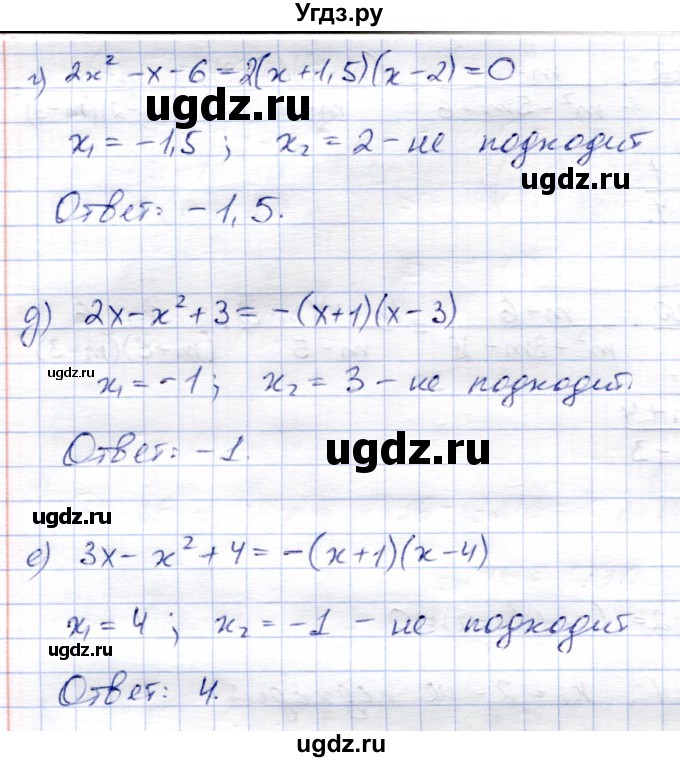 Угдз.ру
г) 2x² - x - 6 = 2(x+1,5)(x-2) = 0
ugdz.ru
x₁ = -1,5 ; x₂ = 2 - не подходит
ugdz.ru
Ответ: -1,5.
д) 2x - x² + 3 = -(x+1)(x-3)
ugdz.ru
x₁ = -1 ; x₂ = 3 - не подходит.
Ответ: -1.
ugdz.ru
ugdz.ru
е) 3x - x² + 4 = -(x+1)(x-4)
x₁ = 4 ; x₂ = -1 - не подходит
ugdz.ru
Ответ: 4.
ugdz.ru
ugdz.ru